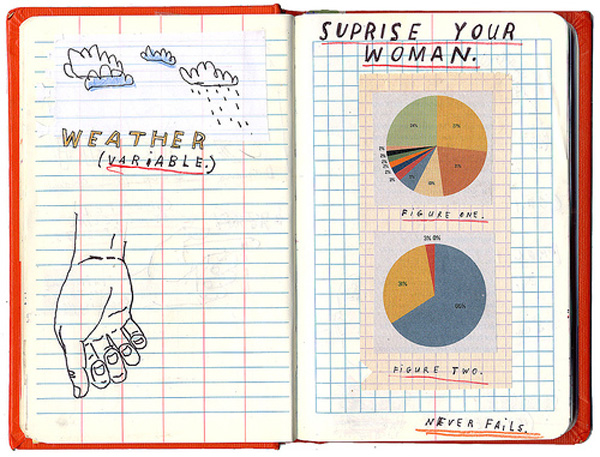 WEATHER
(VARiABLE.)
SUPRISE YOUR
WOMAN.
24% 27%
FIGURE ONE.
3% 0%
FIGURE TWO.
NEVER FAiLS.